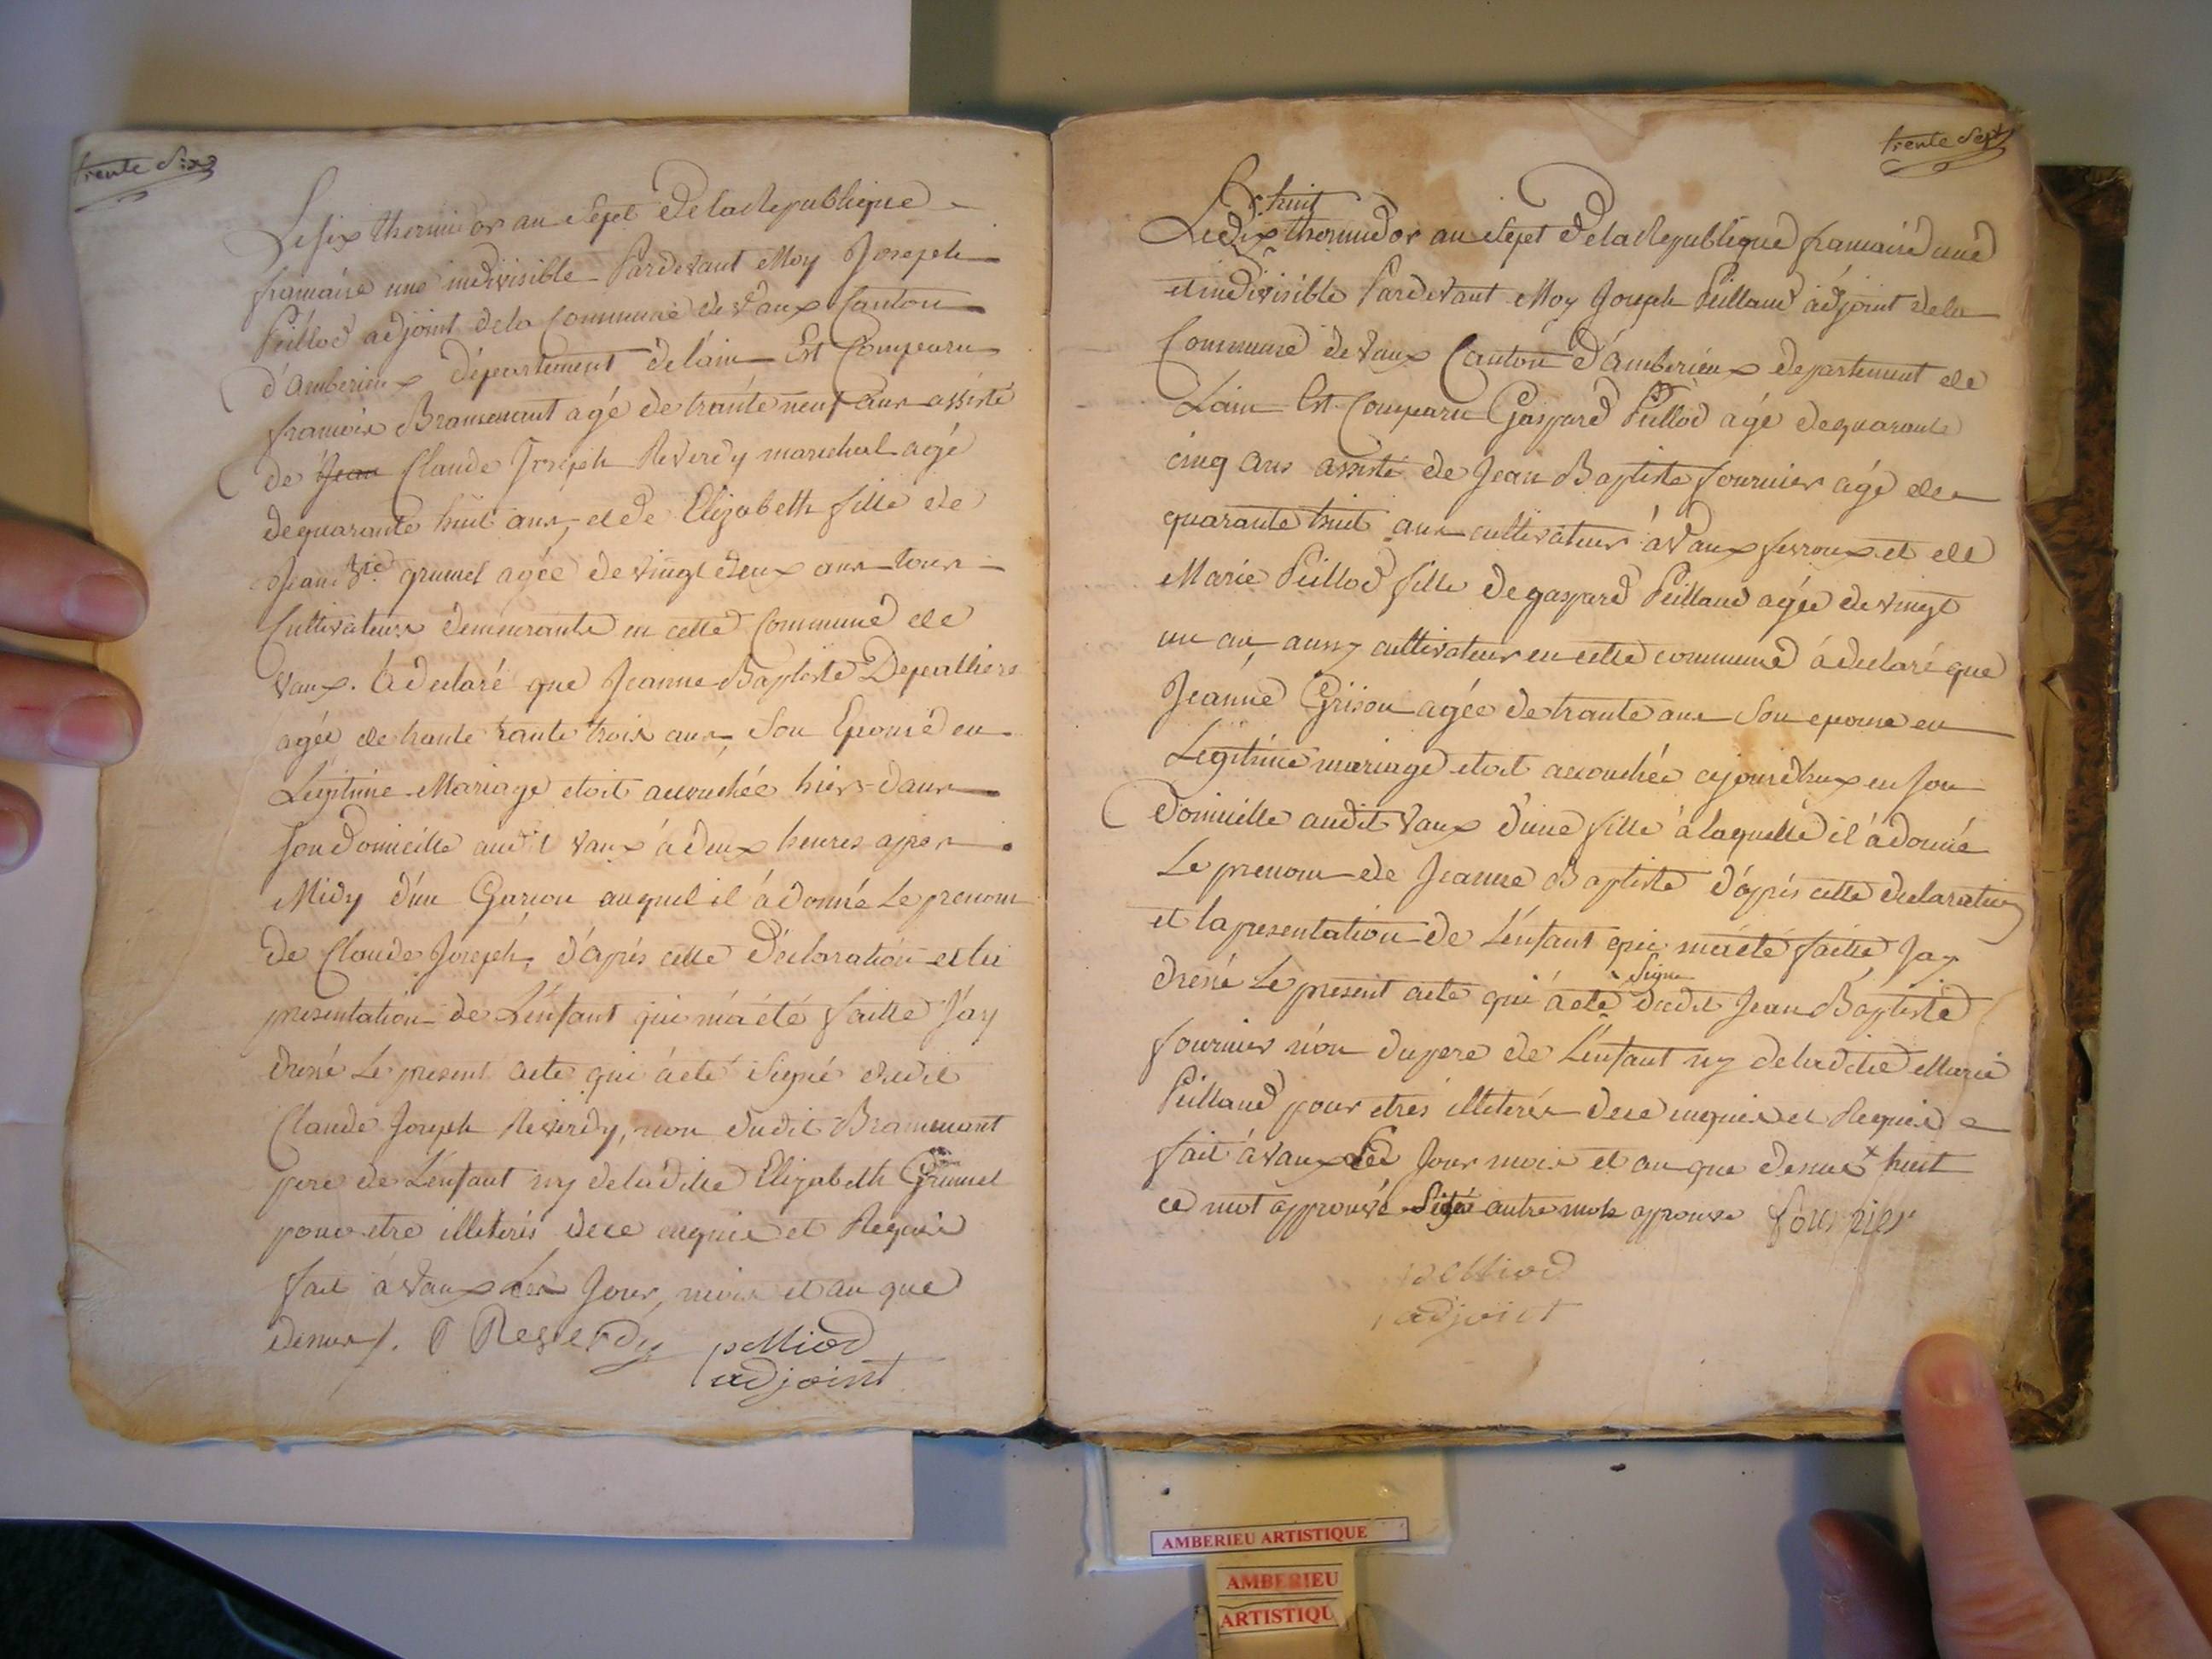 trente Six
Le six thermidor an Sept de la Republique
francaise une indivisible Pardevant Moy Joseph
Peillod adjoint dela Commune de Vaux Canton
d'amberieux département de láin Est Comparu
francois Bramenant agé de trante neuf ans assisté
de Jean Claude Joseph Reverdy marechal agé
de quarante huit ans, et de Elizabeth fille de
Jean Bte grumel agée de vingt deux ans tous
Cultivateurs demeurants en cette Commune de
Vaux. à declaré que Jeanne Baptiste Depalliere
agée de trante trante trois ans, Son Epouse en
Legitime Mariage etoit accouchée hiers dans
son domicille audit Vaux à deux heures apres
Midy d'un Garcon auquel il à donné Le prenom
de Claude Joseph, d'apres cette Declaration et la
presentation de L'enfant qui m'a été faitte J'ay
dressé Le present acte qui à eté Signé dudit
Claude Joseph Reverdy, non dudit Bramenant
pere de L'enfant ny de ladite Elizabeth Grumel
pour etre illeterés de ce enquis et Requis
fait à Vaux Les Jour, mois et an que
dessus /. Reverdy pelliod
adjoint
trente Sept
huit
Le dix thermidor an Sept de la Republique francaise une
et indivisible Pardevant Moy Joseph Peillaud adjoint dela
Commune de Vaux Canton d'amberieux departement de
Lain Est Comparu Gaspard Peillod agé de quarante
cinq ans assisté de Jean Baptiste fournier agé de
quarante huit ans cultivateur à Vaux fevroux et de
Marie Peillod fille de gaspard Peillaud agée de vingt
un an, aussy cultivateur en cette commune à declaré que
Jeanne Grison agée de trante ans Son epouse en
Legitime mariage etoit accouchée cejourdhuy en Son
domicille audit Vaux d'une fille à laquelle il à donné
Le prenom de Jeanne Baptiste d'apres cette declaration
et la presentation de L'enfant qui m'a été faitte Jay
Signé
dressé Le present acte qui à eté dudit Jean Baptiste
fournier non du pere de L'enfant ny de ladite Marie
Peillaud pour etres illeterés de ce enquis et Requis
fait à Vaux Les Jour mois et an que dessus + huit
ce mot approuvé Signé autre mot approuvé fournier
pelliod
adjoint
AMBERIEU ARTISTIQUE
AMBERIEU
ARTISTIQU